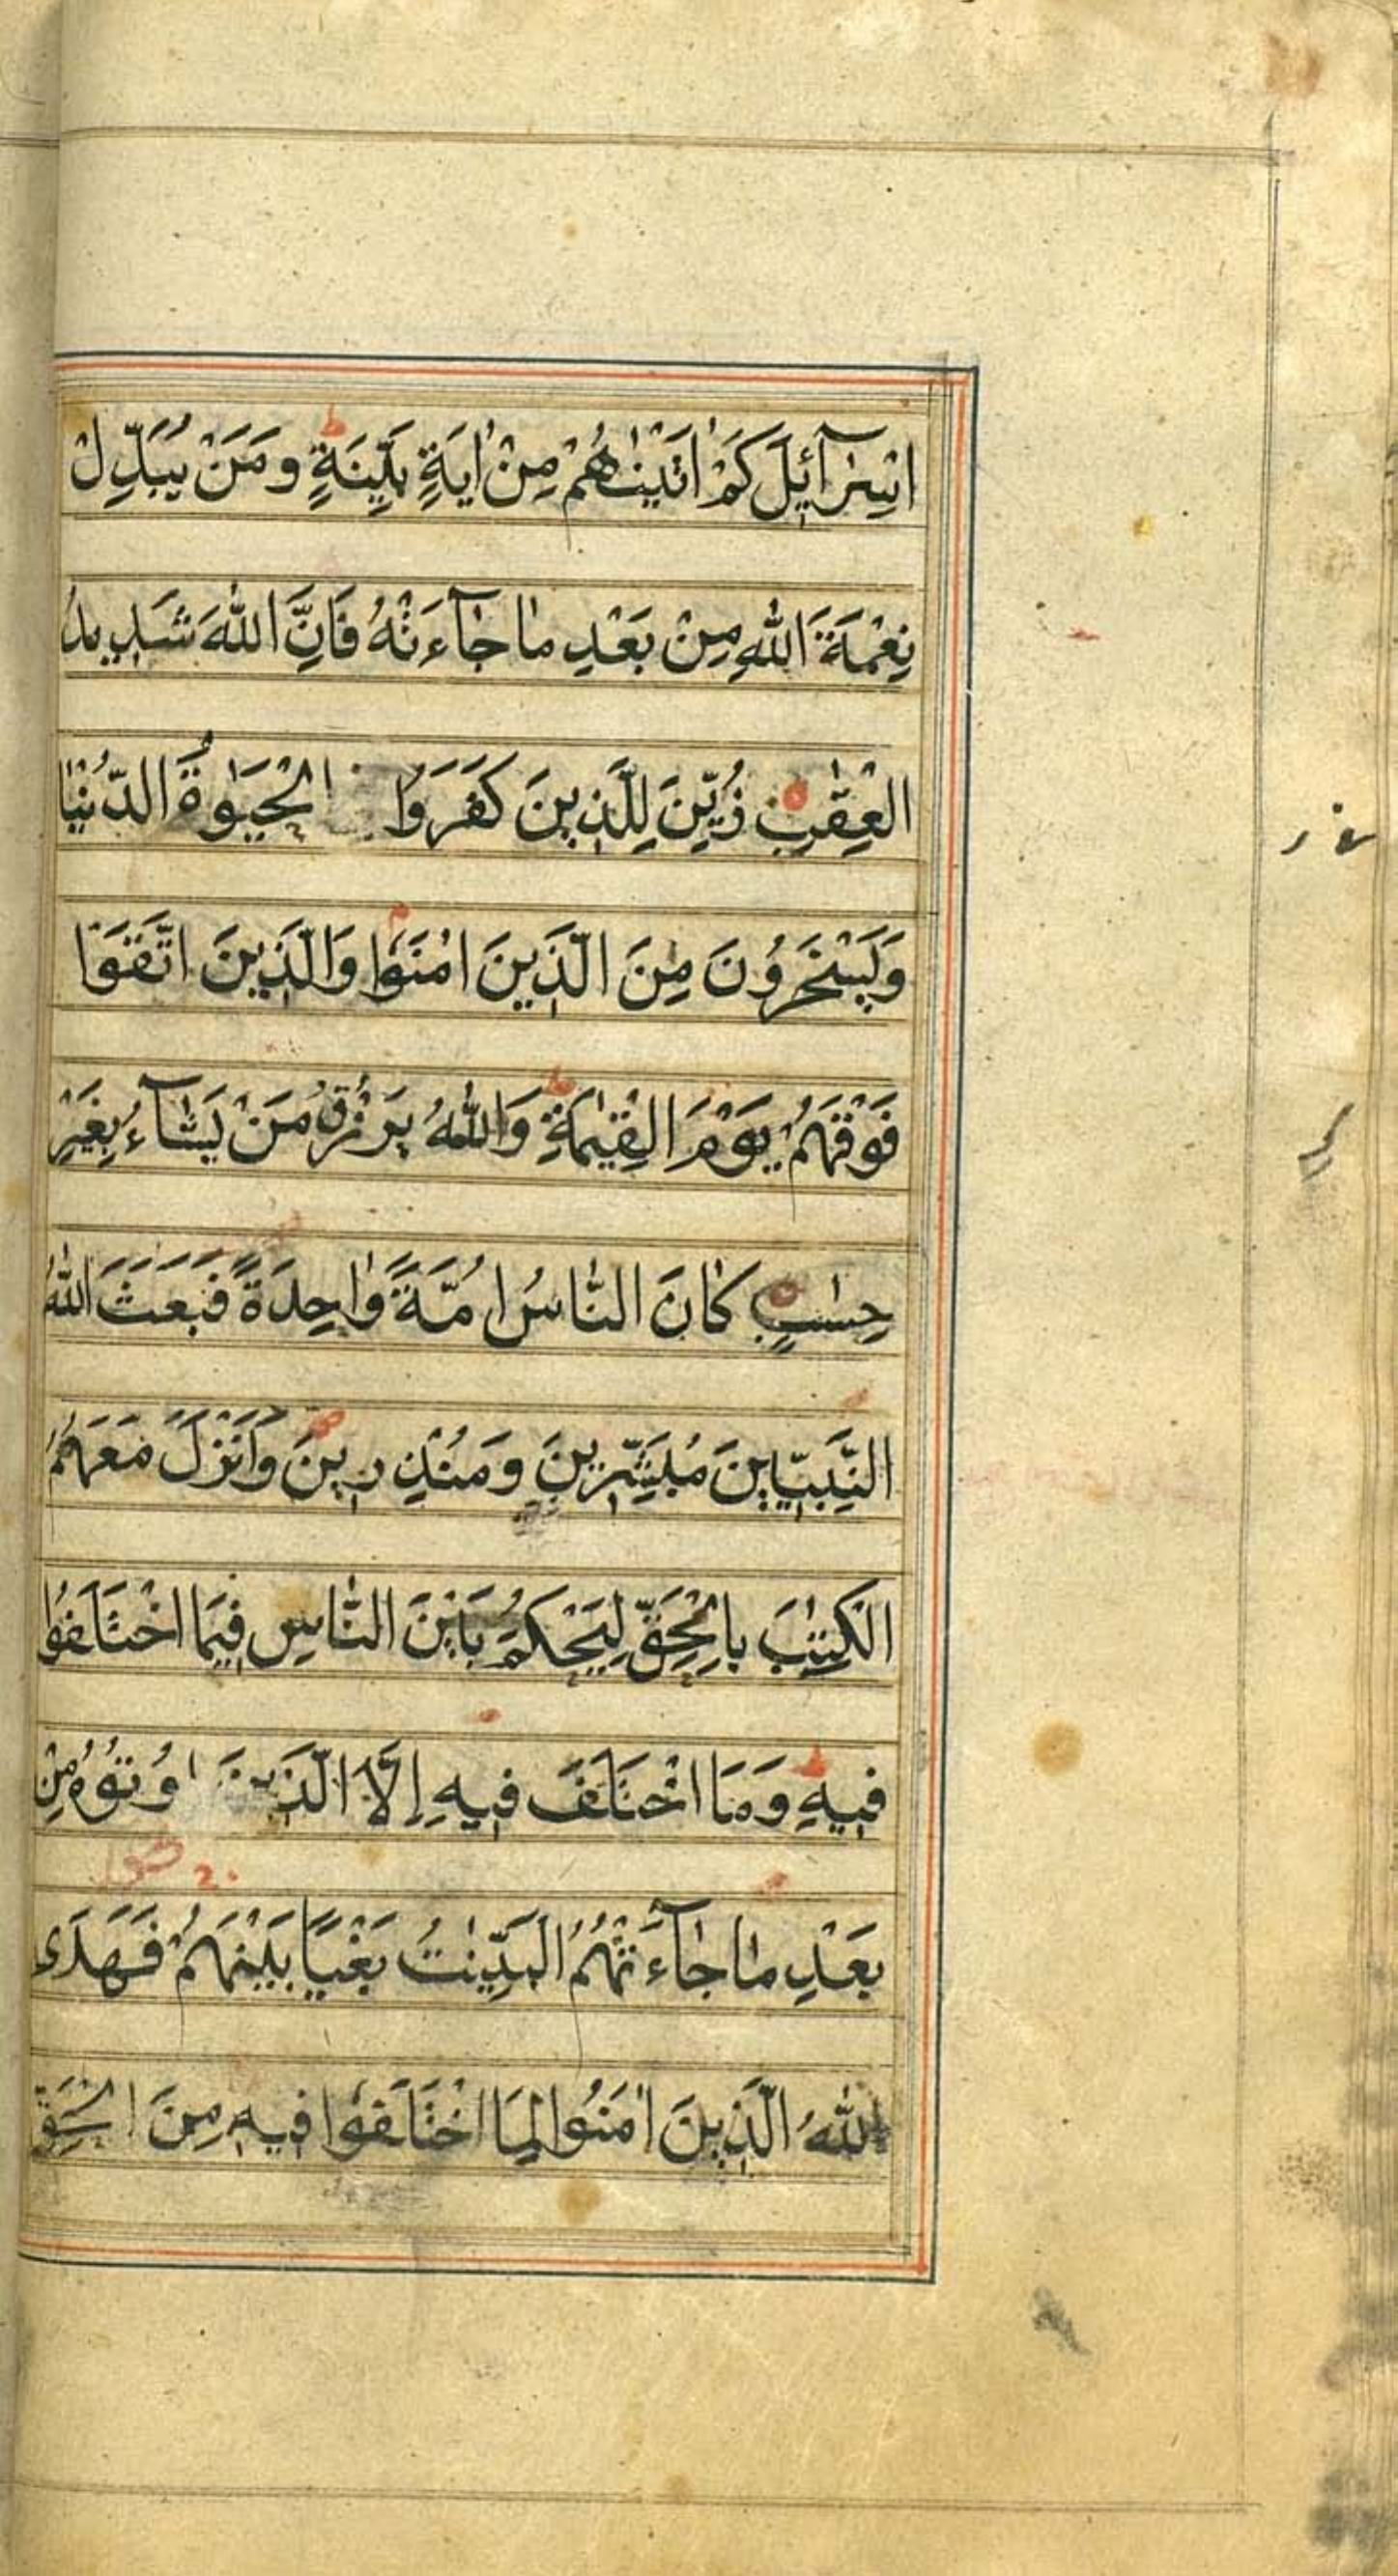 اِسْرٰٓائِلَ كَمْ اٰتَيْنٰهُمْ مِنْ اٰيَةٍ بَيِّنَةٍ ط وَمَنْ يُبَدِّلْ
نِعْمَةَ اللّٰهِ مِنْ بَعْدِ مٰا جٰآءَتْهُ فَاِنَّ اللّٰهَ شَدِيدُ
الْعِقٰبِ زُيِّنَ لِلَّذِينَ كَفَرَوُا الْحَيٰوةُ الدُّنْيٰا
وَيَسْخَرُونَ مِنَ الَّذِينَ اٰمَنُوا م وَالَّذِينَ اتَّقَوْا
فَوْقَهُمْ يَوْمَ الْقِيٰمَةِ ط وَاللّٰهُ يَرْزُقُ مَنْ يَشٰآءُ بِغَيْرِ
حِسٰبٍ كٰانَ النّٰاسُ اُمَّةً وٰاحِدَةً فَبَعَثَ اللّٰهُ
النَّبِيّٖينَ مُبَشِّرِينَ وَمُنْذِرِينَ ص وَاَنْزَلَ مَعَهُمُ
الْكِتٰبَ بِالْحَقِّ لِيَحْكُمَ بَيْنَ النّٰاسِ فِيمَا اخْتَلَفُوا
فِيهِ ط وَمَا اخْتَلَفَ فِيهِ اِلَّا الَّذِينَ اُوتُوهُ مِنْ
بَعْدِ مٰا جٰآءَتْهُمُ الْبَيِّنٰتُ بَغْيًا بَيْنَهُمْ فَهَدَى
اللّٰهُ الَّذِينَ اٰمَنُوا لِمَا اخْتَلَفُوا فِيهِ مِنَ الْحَقِّ